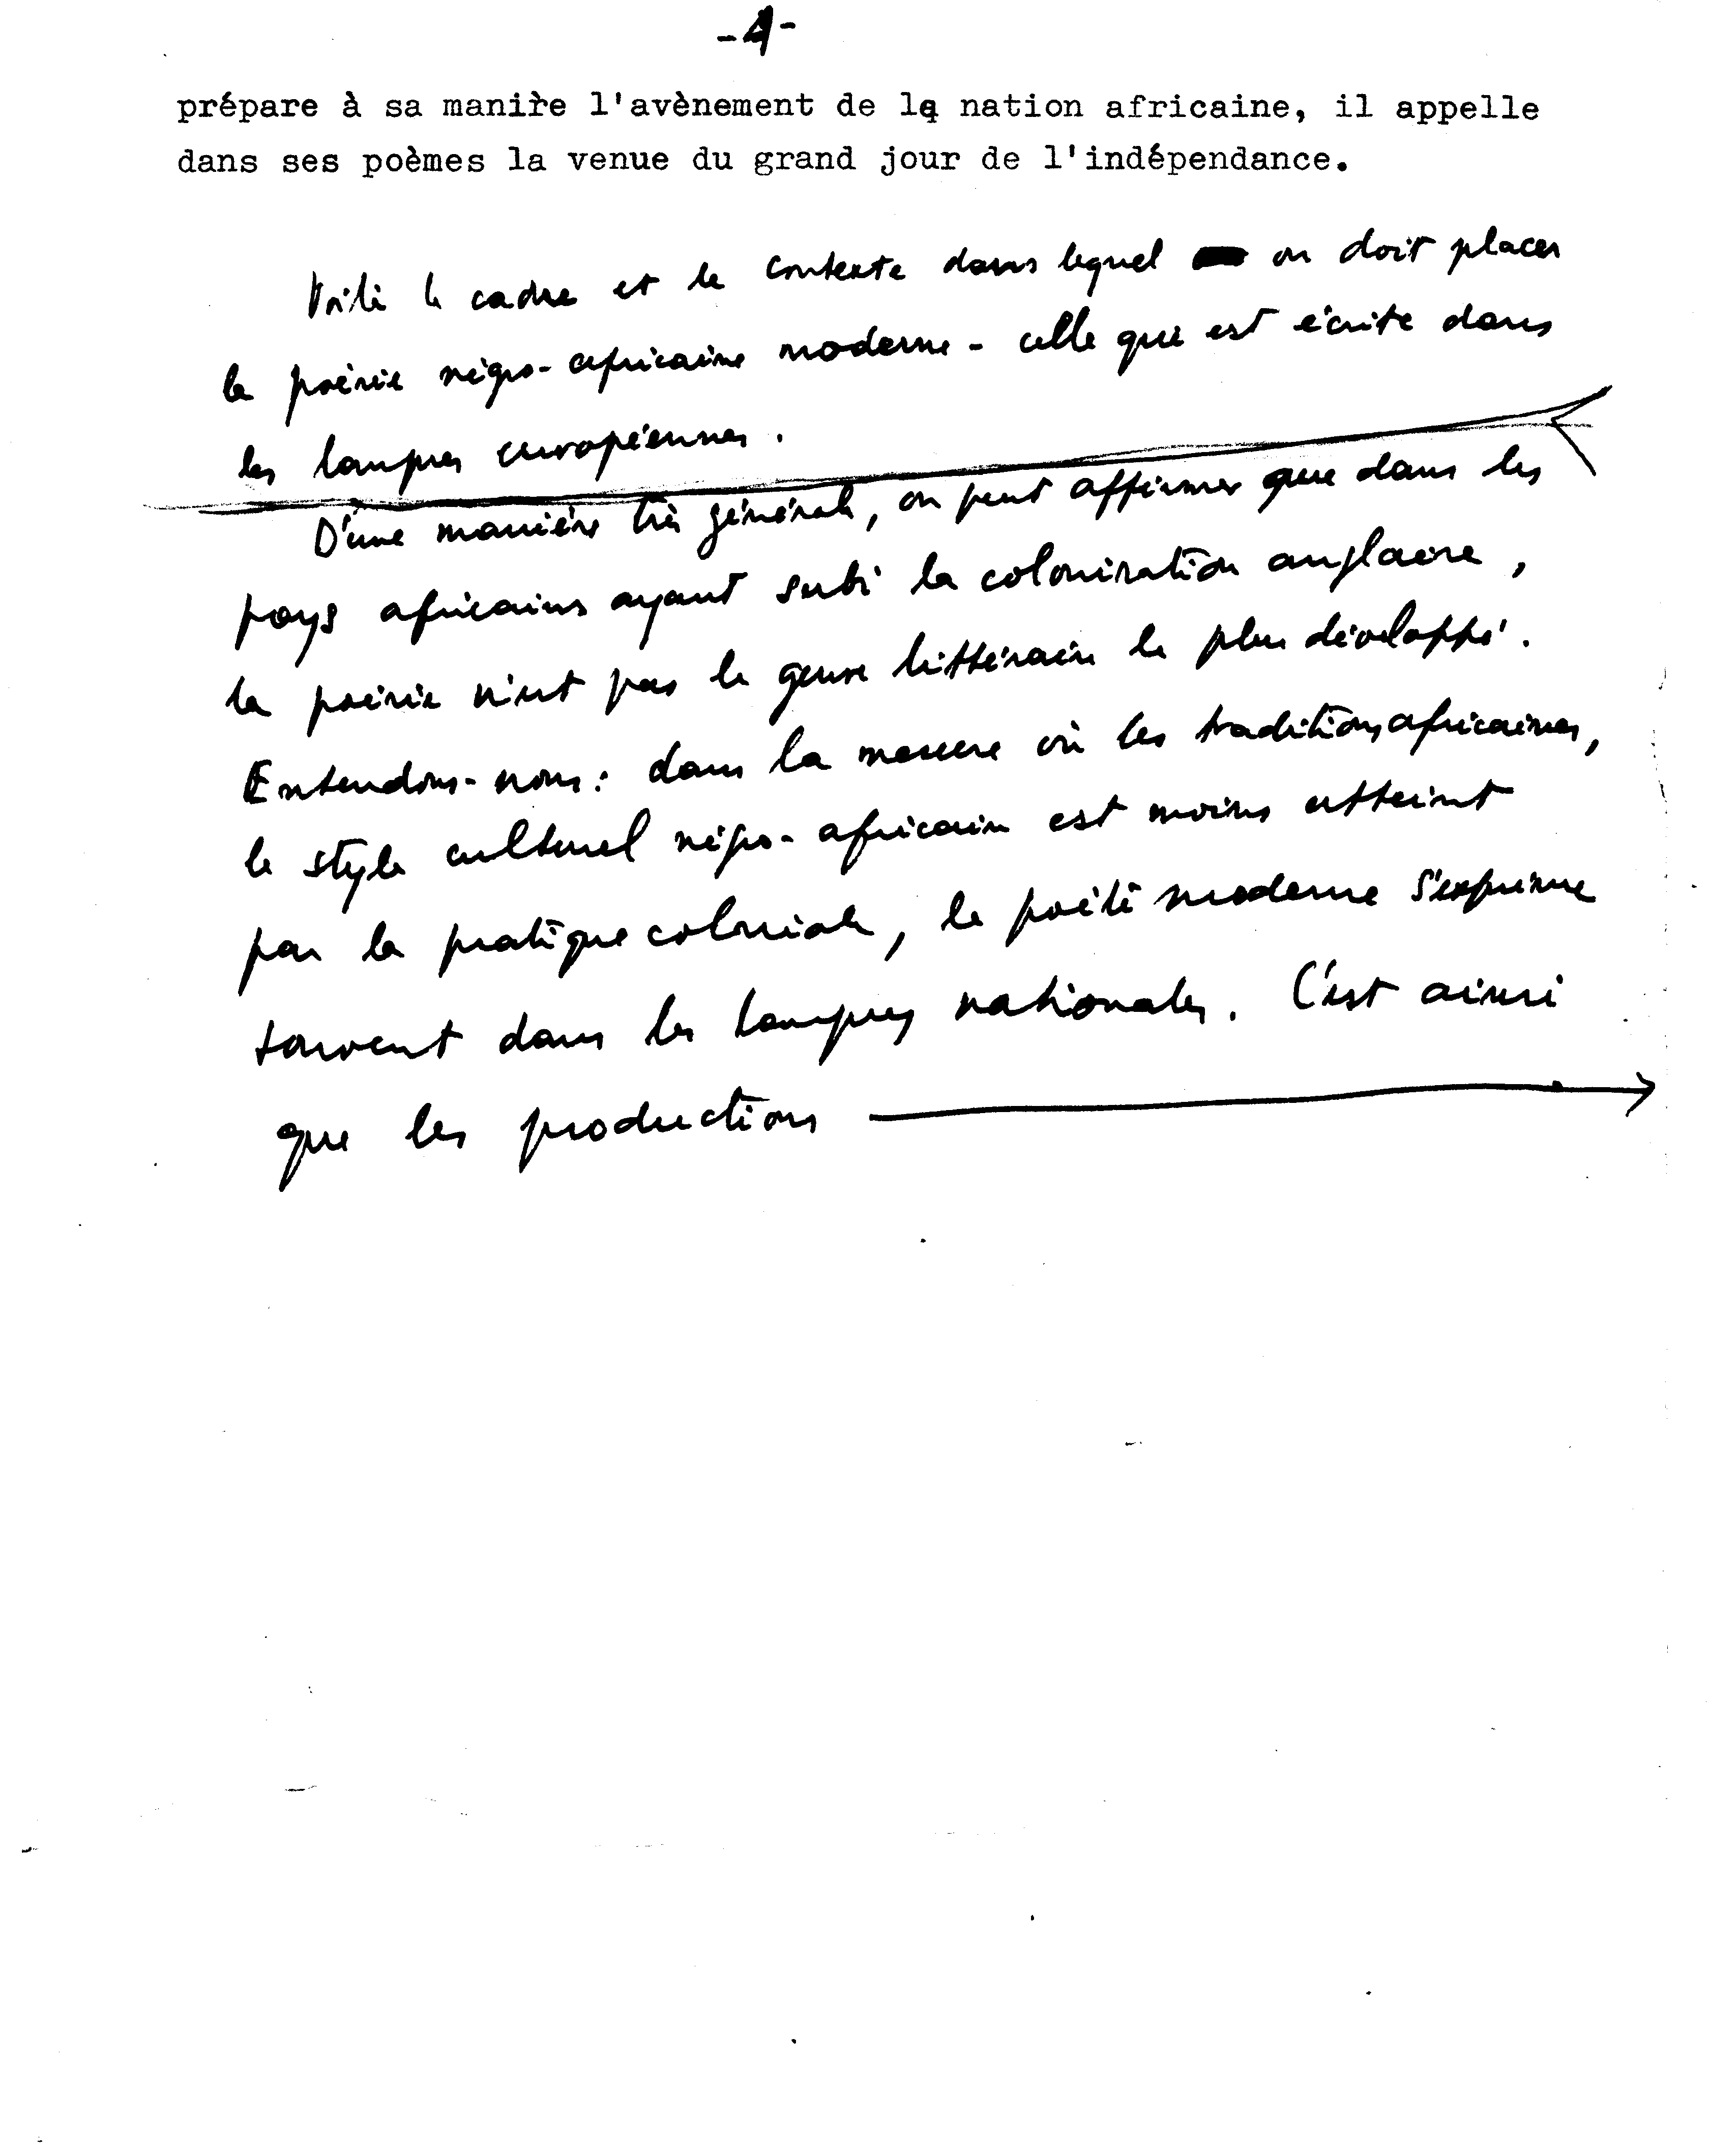 -4-
prépare à sa manière l'avènement de la nation africaine, il appelle
dans ses poèmes la venue du grand jour de l'indépendance.
Voilà le cadre et le contexte dans lequel on doit placer
la poésie négro-africaine moderne - celle qui est écrite dans
les langues européennes.
D'une manière très générale, on peut affirmer que dans les
pays africains ayant subi la colonisation anglaise,
la poésie n'est pas le genre littéraire le plus développé.
Entendons-nous : dans la mesure où les traditions africaines,
le style culturel négro-africain est moins atteint
par la pratique coloniale, le poète moderne s'exprime
souvent dans les langues nationales. C'est ainsi
que les productions